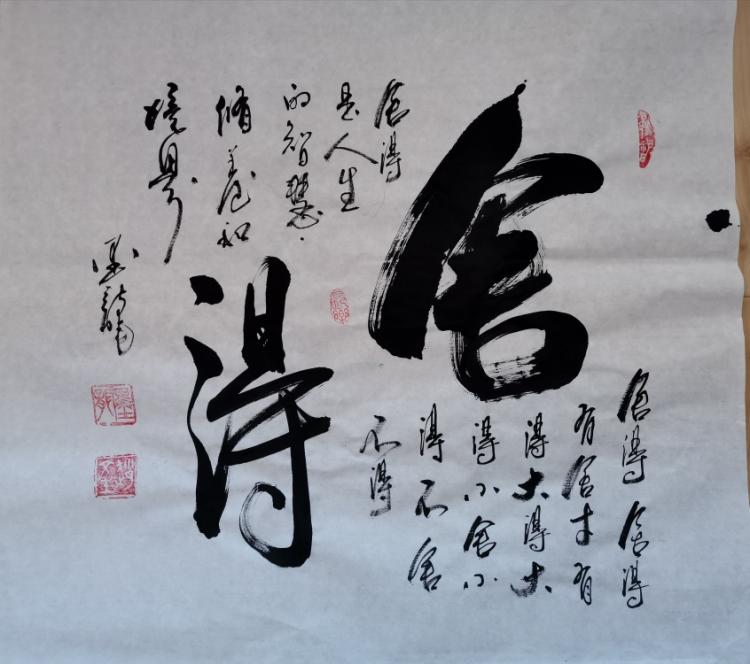 舍得
舍得舍得
有舍才有
得大得大
得小舍小
得不舍
不得
舍得
是人生
的智慧、
修养和
境界